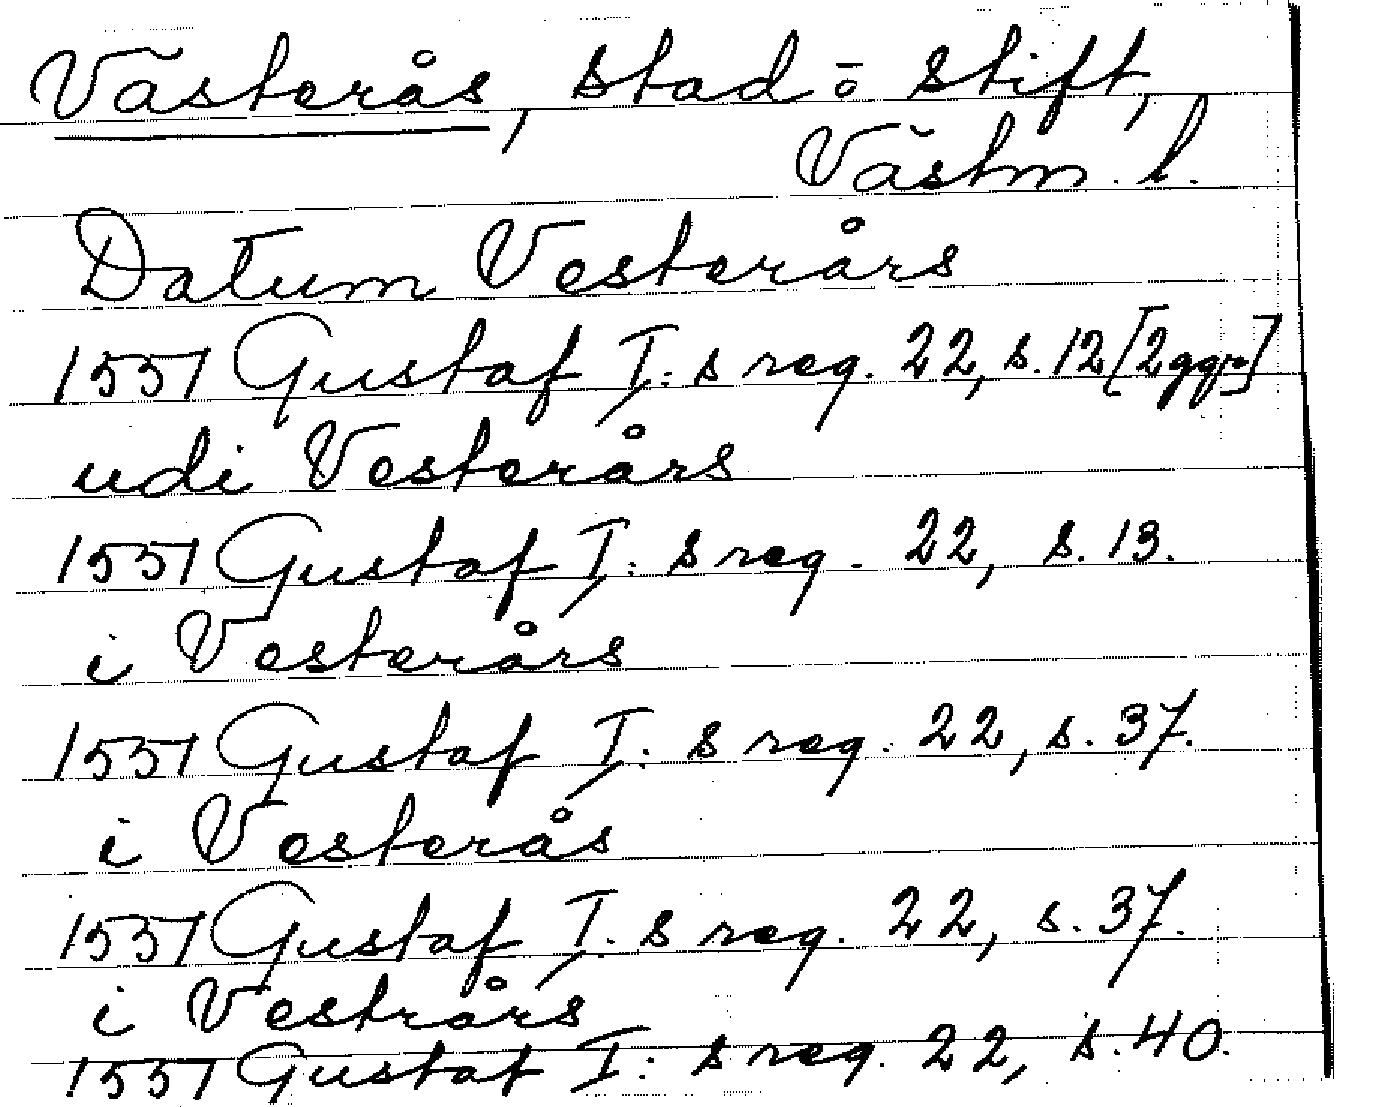 Västerås, stad o stift,
Västm. l.
Datum Vesterårs
1551 Gustaf I:s reg. 22, s. 12 [2 ggr]
udi Vesterårs
1551 Gustaf I:s reg. 22, s. 13.
i Vesterårs
1551 Gustaf I:s reg. 22, s. 37.
i Vesterås
1551 Gustaf I:s reg. 22, s. 37.
i Vestrårs
1551 Gustaf I:s reg. 22, s. 40.